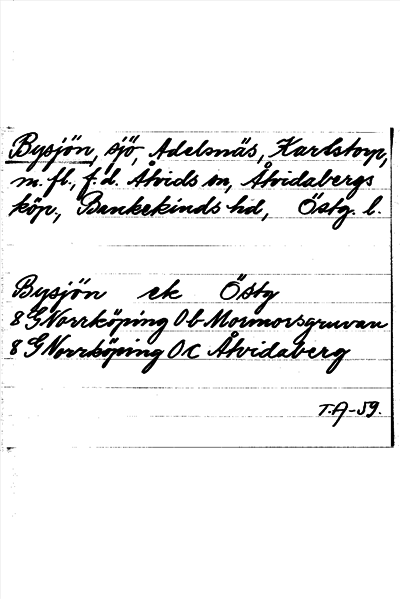 Bysjön, sjö, Adelsnäs, Karlstorp,
m. fl., f. d. Åtvids sn, Åtvidabergs
köp., Bankekinds hd, Östg. l.
Bysjön ek Östg
8 G Norrköping 0 b Mormorsgruvan
8 G Norrköping 0 c Åtvidaberg
T.A-59.